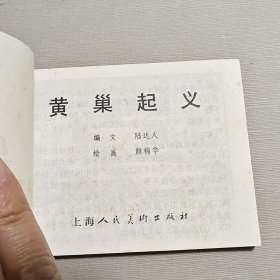 黄巢起义
编文 陆达人
绘画 颜梅华
上海人民美术出版社